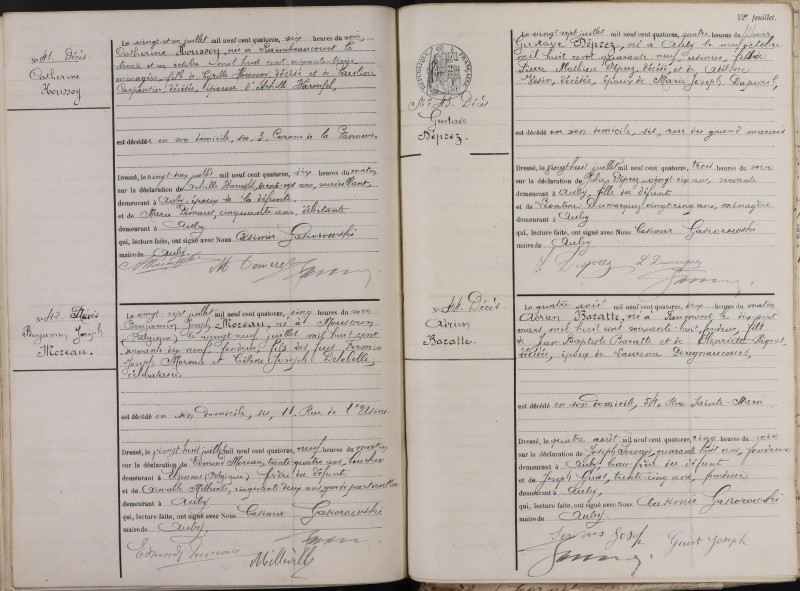 Nº 41. Décès
Catherine
Houssoy
Le vingt et un juillet mil neuf cent quatorze, six heures du soir,
Catherine Houssoy, née à Raimbeaucourt le
trente et un octobre mil huit cent
ménagère, fille de décédé et de
Carpentier, décédée, épouse d'Achille
est décédée en son domicile, sis, 3, Corons de la
Dressé, le vingt-deux juillet mil neuf cent quatorze, six heures du matin
sur la déclaration de Achille trente sept ans, surveillant
demeurant à Auby, époux de la défunte
et de Marie cinquante ans, débitante
demeurant à Auby
qui, lecture faite, ont signé avec Nous Casimir Gasiorowski
maire de Auby.
Nº 42. Décès
Benjamin Joseph
Moreau.
Le vingt sept juillet mil neuf cent quatorze, cinq heures du soir
Benjamin Joseph Moreau, né à Mouscron
(Belgique) le vingt neuf juillet mil huit cent
soixante dix neuf, fondeur, fils des feus
Joseph Moreau et Céline Joseph Delobelle,
célibataire.
est décédé en son domicile, sis, 11. Rue de l'Usine
Dressé, le vingt huit juillet mil neuf cent quatorze, neuf heures du matin
sur la déclaration de Edmond Moreau, trente quatre ans, boucher
demeurant à (Belgique) frère du défunt
et de cinquante deux ans, garde particulier
demeurant à Auby
qui, lecture faite, ont signé avec Nous Casimir Gasiorowski
maire de Auby,
Edmond Moreau
12e feuillet.
RÉPUBLIQUE FRANÇAISE
Nº 43. Décès
Gustave
Déprez.
Le vingt sept juillet mil neuf cent quatorze, quatre heures du
Gustave Déprez, né à Auby le neuf octobre
mil huit cent quarante neuf, usinier, fils de
Pierre Mathieu Déprez, décédé, et de
décédée, époux de Marie Joseph
est décédé en son domicile, sis, rue du grand marais
Dressé, le vingt huit juillet mil neuf cent quatorze, trois heures du soir
sur la déclaration de Déprez vingt-six ans, servante
demeurant à Auby, fille du défunt
et de Léontine vingt cinq ans, ménagère
demeurant à Auby
qui, lecture faite, ont signé avec Nous Casimir Gasiorowski
maire de Auby
Nº 44. Décès
Adrien
Baratte.
Le quatre août mil neuf cent quatorze, six heures du matin
Adrien Baratte, né à le dix sept
mars, mil huit cent soixante huit, fondeur, fils
de Jean Baptiste Baratte et de Henriette
décédée, époux de Laurence
est décédé en son domicile, 54, Rue Sainte-Marie
Dressé, le quatre août mil neuf cent quatorze, cinq heures du soir
sur la déclaration de Joseph Servais, quarante huit ans, fondeur
demeurant à Auby, beau-frère du défunt
et de Joseph trente cinq ans, fondeur
demeurant à Auby,
qui, lecture faite, ont signé avec Nous Casimir Gasiorowski
maire de Auby.
Servais Josef
Joseph